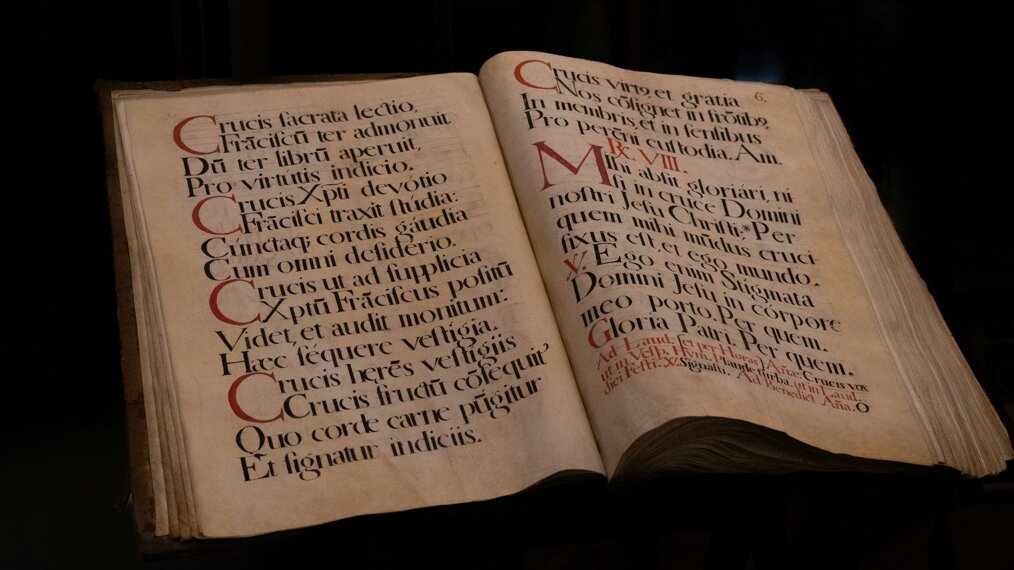 Crucis ſacrata lectio,
Frãciſcũ ter admonuit
Dũ ter librũ aperuit,
Pro virtutis indicio.
Crucis Xp̃ti devotio
Frãciſci traxit ſtudia:
Cunctaq; cordis gáudia
Cum omni deſiderio.
Crucis ut ad ſupplicia
Xptũ Frãciſcus poſitũ
Videt, et audit monitum:
Hæc ſéquere veſtigia.
Crucis herẽs veſtigiis
Crucis fructũ cõſequit᷑
Quo corde carne pũgitur
Et ſignatur indiciis.
Crucis virtꝰ, et gratia 6.
Nos cõſignet in frõtibꝰ
In membris, et in ſenſibus
Pro perẽni cuſtodia. Am.
℟. VIII.
Mihi abſit gloriári, ni-
ſi in cruce Domini
noſtri Jeſu Chriſti: * Per
quem mihi mũdus cruci-
fixus eſt, et ego mundo.
℣. Ego enim Stigmata
Domini Jeſu in corpore
meo porto. Per quem.
Gloria Patri. Per quem.
Ad Laud. et per Horas Aña. Crucis vox
ut in Veſp. Hym. Plaude turba. ut in Laud.
diei Feſti. ℣. Signaſti. Ad Benedict Aña. O